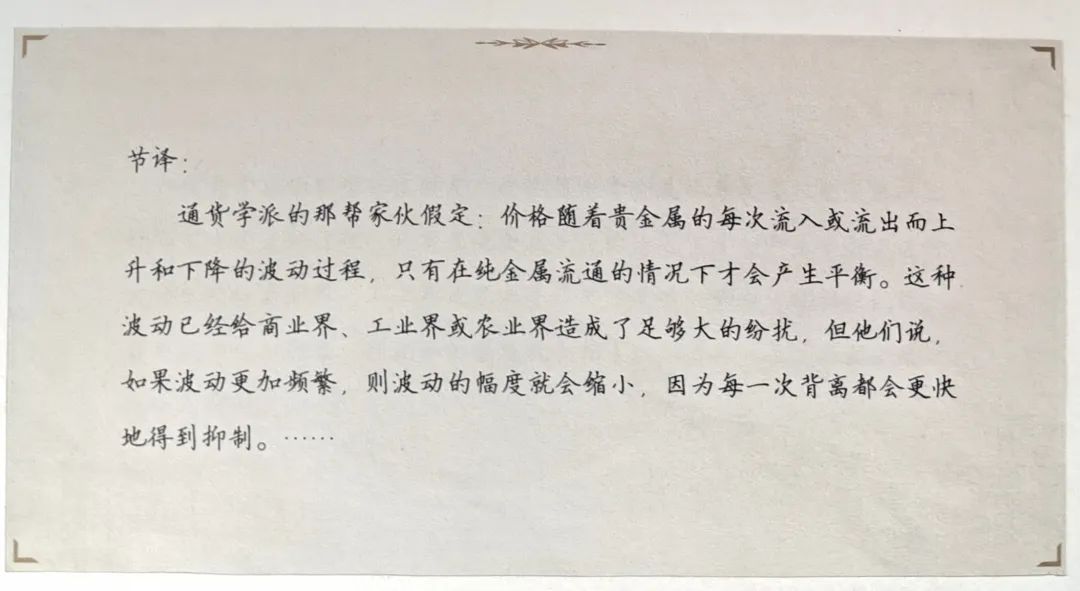 节译：
通货学派的那帮家伙假定：价格随着贵金属的每次流入或流出而上
升和下降的波动过程，只有在纯金属流通的情况下才会产生平衡。这种
波动已经给商业界、工业界或农业界造成了足够大的纷扰，但他们说，
如果波动更加频繁，则波动的幅度就会缩小，因为每一次背离都会更快
地得到抑制。……